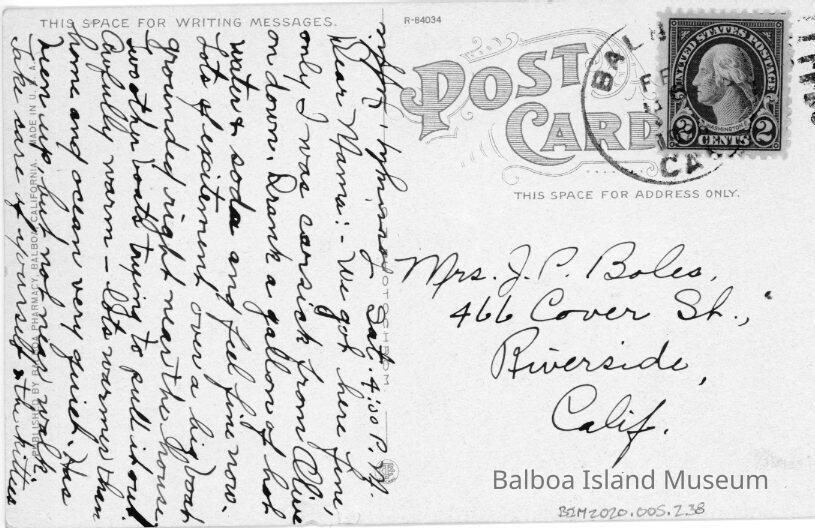 THIS SPACE FOR WRITING MESSAGES.
R-84034
POST
CARD
THIS SPACE FOR ADDRESS ONLY.
BALB
FE
CAL
UNITED STATES POSTAGE
WASHINGTON
2 CENTS 2
Sat. 4:00 P.M.
Dear Mama:- We got here fine,
only I was carsick from Olive
on down. Drank a gallon of hot
water & soda and feel fine now.
Lots of excitement over a big boat
grounded right near the house
& two other boats trying to pull it out.
Awfully warm - lots warmer than
home and ocean very quiet. Has
been up but not near walk.
Take care of yourself & the kitties
PUBLISHED BY BALBOA PHARMACY, BALBOA, CALIFORNIA. MADE IN U.S.A.
Mrs. J. P. Boles,
466 Cover St.,
Riverside,
Calif.
Balboa Island Museum
BIM2020.005.2.38